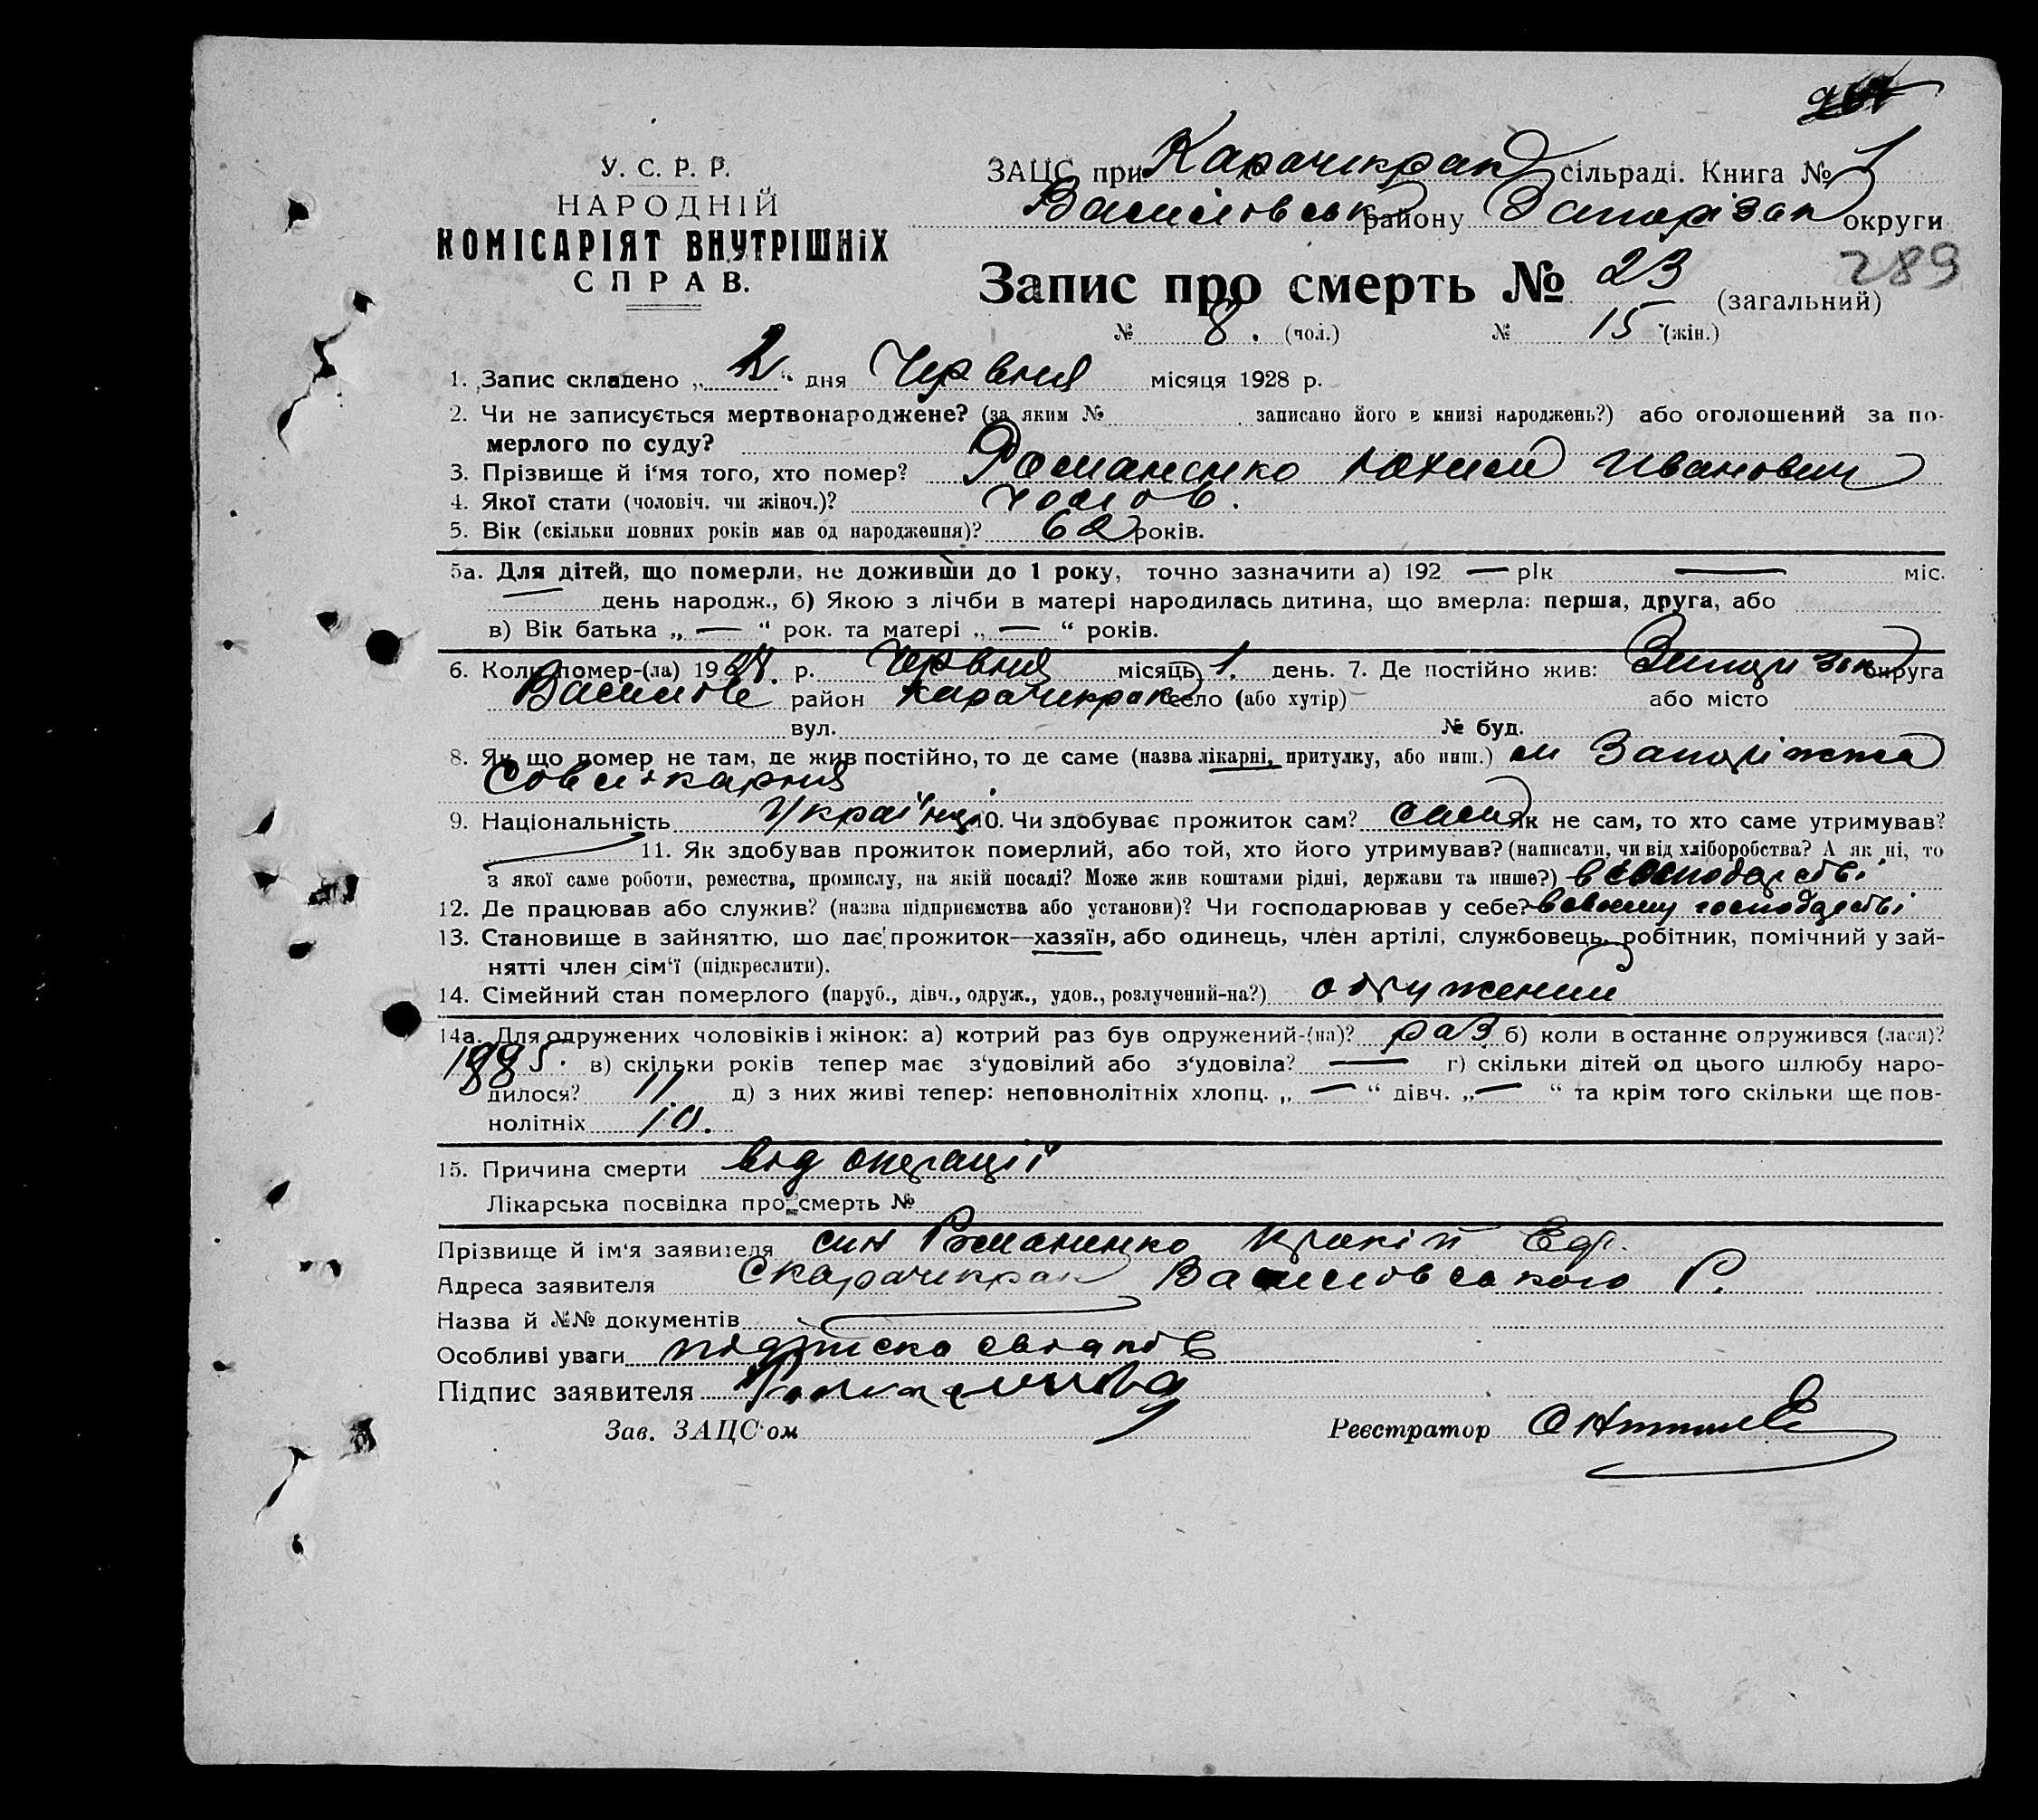 У. С. Р. Р.
НАРОДНІЙ
КОМІСАРІЯТ ВНУТРІШНІХ
СПРАВ.
ЗАЦС при Карачикрак сільраді. Книга № 1
Василівськ району Запоріз. ок округи
289
Запис про смерть № 23 (загальний)
№ 8. (чол.) № 15 (жін.)
1. Запис складено „ 2 “ дня Червня місяця 1928 р.
2. Чи не записується мертвонароджене? (за яким № записано його в книзі народжень?) або оголошений за по-
мерлого по суду?
3. Прізвище й і‘мя того, хто помер? Романенко Иванович
4. Якої стати (чоловіч. чи жіноч.)? чолов.
5. Вік (скільки повних років мав од народження)? 62 років.
5а. Для дітей, що померли, не доживши до 1 року, точно зазначити а) 192 — рік — міс.
— день народж., б) Якою з лічби в матері народилась дитина, що вмерла: перша, друга, або
в) Вік батька „ — “ рок. та матері „ — “ років.
6. Коли помер-(ла) 1928. р. Червня місяць 1. день. 7. Де постійно жив: округа
район Карачикрак село (або хутір) або місто
вул. № буд.
8. Як що помер не там, де жив постійно, то де саме (назва лікарні, притулку, або инш.) м Запоріжжа
Совлікарня
9. Національність Українці 10. Чи здобуває прожиток сам? сам Як не сам, то хто саме утримував?
11. Як здобував прожиток померлий, або той, хто його утримував? (написати, чи від хліборобства? А як ні, то
з якої саме роботи, ремества, промислу, на якій посаді? Може жив коштами рідні, держави та инше?) в господарстві
12. Де працював або служив? (назва підприємства або установи)? Чи господарював у себе? в своєму господарстві
13. Становище в зайняттю, що дає прожиток—хазяїн, або одинець, член артілі, службовець, робітник, помічний у зай-
нятті член сім‘ї (підкреслити).
14. Сімейний стан померлого (паруб., дівч., одруж., удов., розлучений-на?) одружений
14а. Для одружених чоловіків і жінок: а) котрий раз був одружений-(на)? раз б) коли в останнє одружився (лася)?
1885. в) скільки років тепер має з‘удовілий або з‘удовіла? — г) скільки дітей од цього шлюбу наро-
дилося? 11 д) з них живі тепер: неповнолітніх хлопц. „ — “ дівч. „ — “ та крім того скільки ще пов-
нолітніх 10.
15. Причина смерти від операції
Лікарська посвідка про смерть №
Прізвище й ім‘я заявителя син Романенко
Адреса заявителя с Карачикрак Василовського Р.
Назва й №№ документів
Особливі уваги підписка свідків
Підпис заявителя
Зав. ЗАЦС‘ом Реєстратор